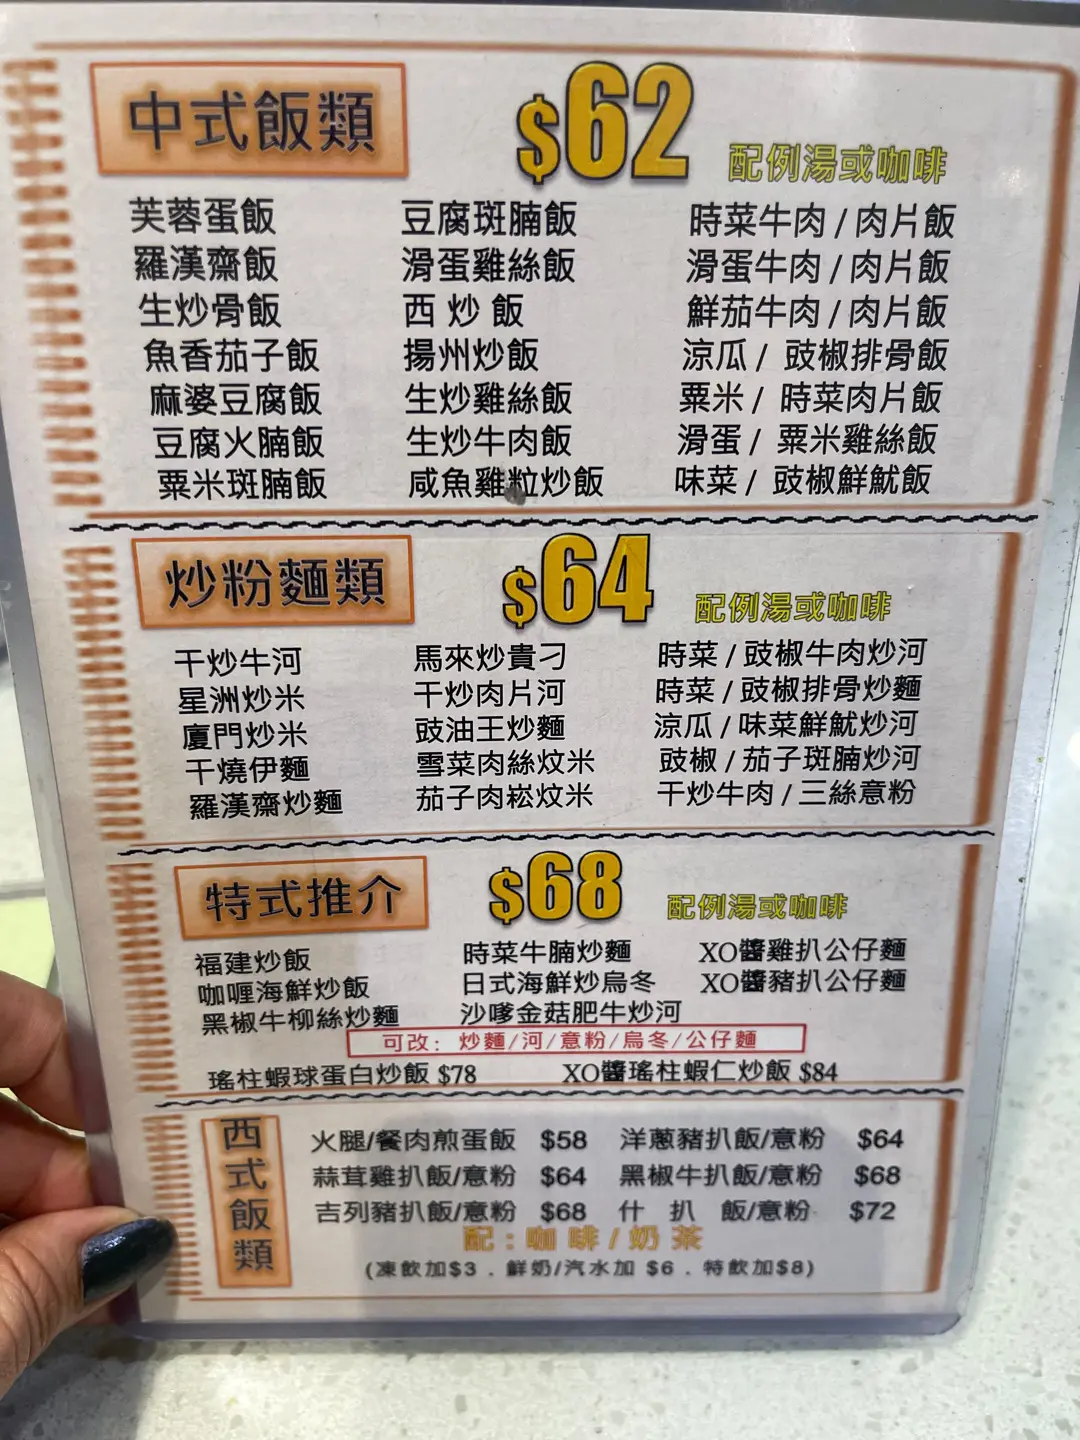 中式飯類 $62 配例湯或咖啡
芙蓉蛋飯 豆腐斑腩飯 時菜牛肉 / 肉片飯
羅漢齋飯 滑蛋雞絲飯 滑蛋牛肉 / 肉片飯
生炒骨飯 西炒飯 鮮茄牛肉 / 肉片飯
魚香茄子飯 揚州炒飯 涼瓜 / 豉椒排骨飯
麻婆豆腐飯 生炒雞絲飯 粟米 / 時菜肉片飯
豆腐火腩飯 生炒牛肉飯 滑蛋 / 粟米雞絲飯
粟米斑腩飯 咸魚雞粒炒飯 味菜 / 豉椒鮮魷飯
炒粉麵類 $64 配例湯或咖啡
干炒牛河 馬來炒貴刁 時菜 / 豉椒牛肉炒河
星洲炒米 干炒肉片河 時菜 / 豉椒排骨炒麵
廈門炒米 豉油王炒麵 涼瓜 / 味菜鮮魷炒河
干燒伊麵 雪菜肉絲炆米 豉椒 / 茄子斑腩炒河
羅漢齋炒麵 茄子肉崧炆米 干炒牛肉 / 三絲意粉
特式推介 $68 配例湯或咖啡
福建炒飯 時菜牛腩炒麵 XO醬雞扒公仔麵
咖喱海鮮炒飯 日式海鮮炒烏冬 XO醬豬扒公仔麵
黑椒牛柳絲炒麵 沙嗲金菇肥牛炒河
可改：炒麵/河/意粉/烏冬/公仔麵
瑤柱蝦球蛋白炒飯 $78 XO醬瑤柱蝦仁炒飯 $84
西式飯類
火腿/餐肉煎蛋飯 $58 洋蔥豬扒飯/意粉 $64
蒜茸雞扒飯/意粉 $64 黑椒牛扒飯/意粉 $68
吉列豬扒飯/意粉 $68 什扒 飯/意粉 $72
配：咖啡/奶茶
(凍飲加$3．鮮奶/汽水加 $6．特飲加$8)